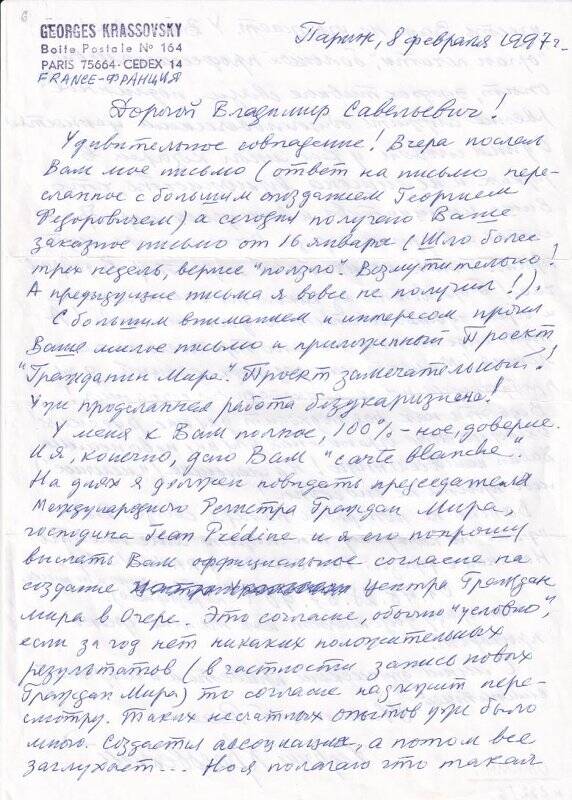 6
GEORGES KRASSOVSKY
Boite Postale No 164
PARIS 75664 - CEDEX 14
FRANCE-ФРАНЦИЯ
Париж, 8 февраля 1997 г.
Дорогой Владимир Савельевич!
Удивительное совпадение! Вчера послал
Вам мое письмо (ответ на письмо, пере-
сланное с большим опозданием Георгием
Федоровичем) а сегодня получаю Ваше
заказное письмо от 16 января (Шло более
трех недель, вернее "ползло". Возмутительно!
А предыдущие письма я вовсе не получил!).
С большим вниманием и интересом прочел
Ваше милое письмо и приложенный Проект
"Гражданин Мира". Проект замечательный!
Уже проделанная работа безукаризнена!
У меня к Вам полное, 100%-ное, доверие.
И я, конечно, даю Вам "carte blanche".
На днях я должен повидать председателя
Международного Регистра Граждан Мира,
господина Jean Prédine и я его попрошу
выслать Вам оффициальное согласие на
создание Центра Граждан
мира в Очере. Это согласие, обычно "условно",
если за год нет никаких положительных
результатов (в частности запись новых
Граждан Мира) то согласие надлежит пере-
смотру. Таких несчатных опытов уже было
много. Создается ассоциация, а потом все
заглухает... Но я полагаю что такая